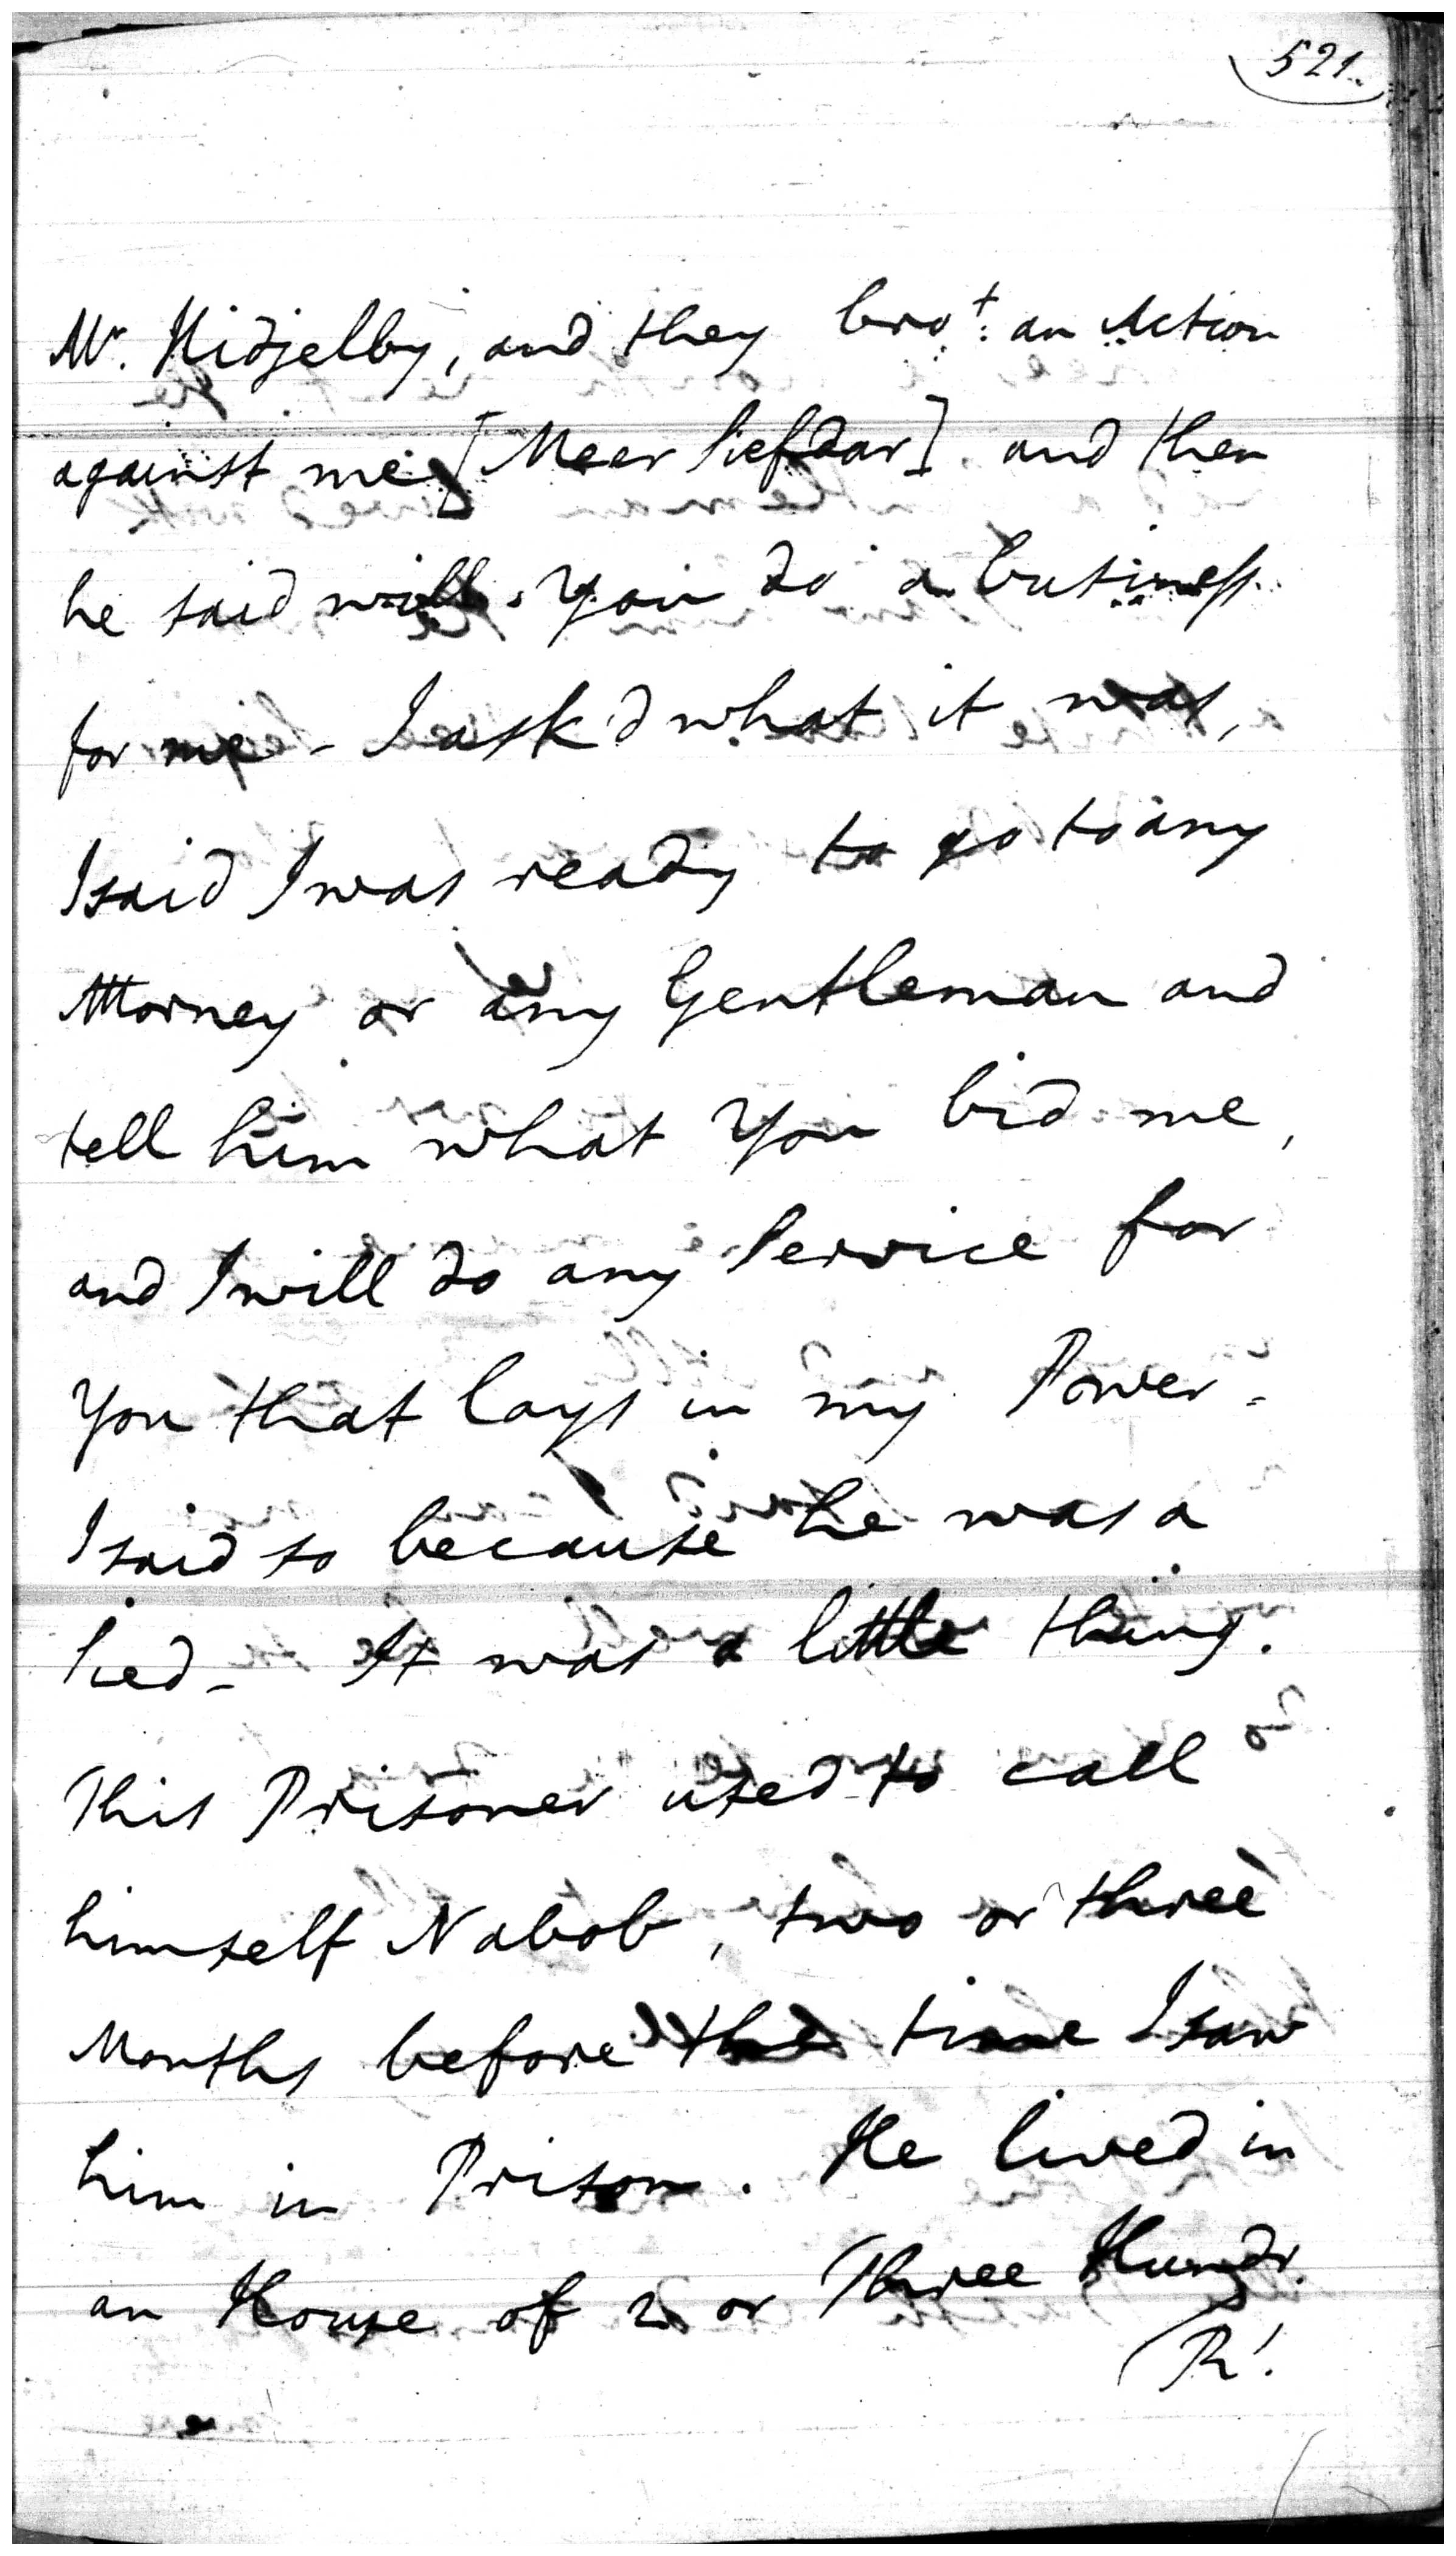 521.
Mr. Hidjelby, and they bro.t an Action
against me [Meer Siefdar] and then
he said will You do a business
for me - I ask'd what it was,
I said I was ready to go to any
Attorney or any Gentleman and
tell him what You bid me,
and I will do any Service for
You that lays in my Power -
I said so because he was a
Sied - It was a little thing.
This Prisoner used to call
himself Nabob, two or three
Months before the time I saw
him in Prison. He lived in
an House of 2 or Three Hundr.
Rs.